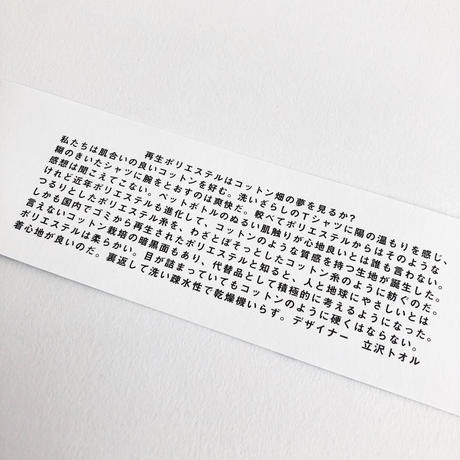 再生ポリエステルはコットン畑の夢を見るか?
私たちは肌合いの良いコットンを好む。洗いざらしのTシャツに陽の温もりを感じ、
糊のきいたシャツに腕をとおすのは爽快だ。較べてポリエステルからはそのような
感想は聞こえてこない。ペットボトルのぬるい肌触りが心地良いとは誰も言わない。
けれど近年ポリエステルも進化して、コットンのような質感を持つ生地が誕生した。
つるりとしたポリエステル糸を、わざとぼそっとしたコットン糸のように紡ぐのだ。
しかも国内でゴミから再生されたポリエステルと知ると、人と地球にやさしいとは
言えないコットン栽培の暗黒面もあり、代替品として積極的に考えるようになった。
ポリエステルは柔らかい。目が詰まっていてもコットンのように硬くはならない。
着心地が良いのだ。裏返して洗い疎水性で乾燥機いらず。デザイナー 立沢トオル